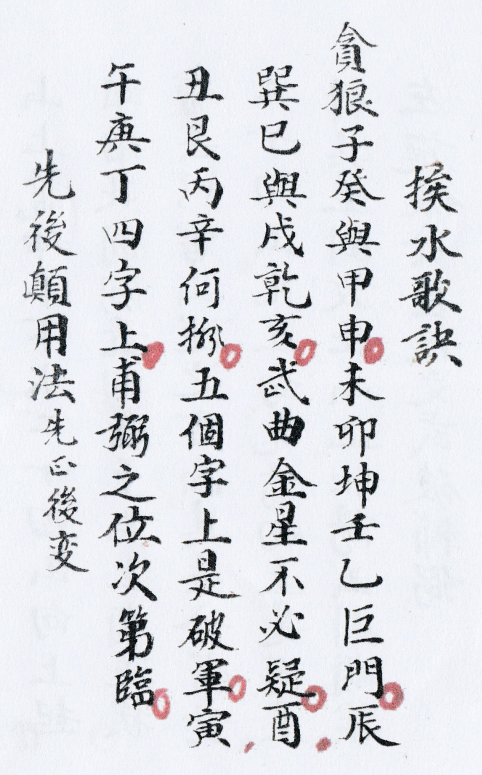 挨水歌訣
貪狼子癸與甲申未卯坤壬乙巨門辰
巽巳與戌乾亥武曲金星不必疑酉
丑艮丙辛何五個字上是破軍寅
午庚丁四字上甫弼之位次第臨
先後顛用法先正後变